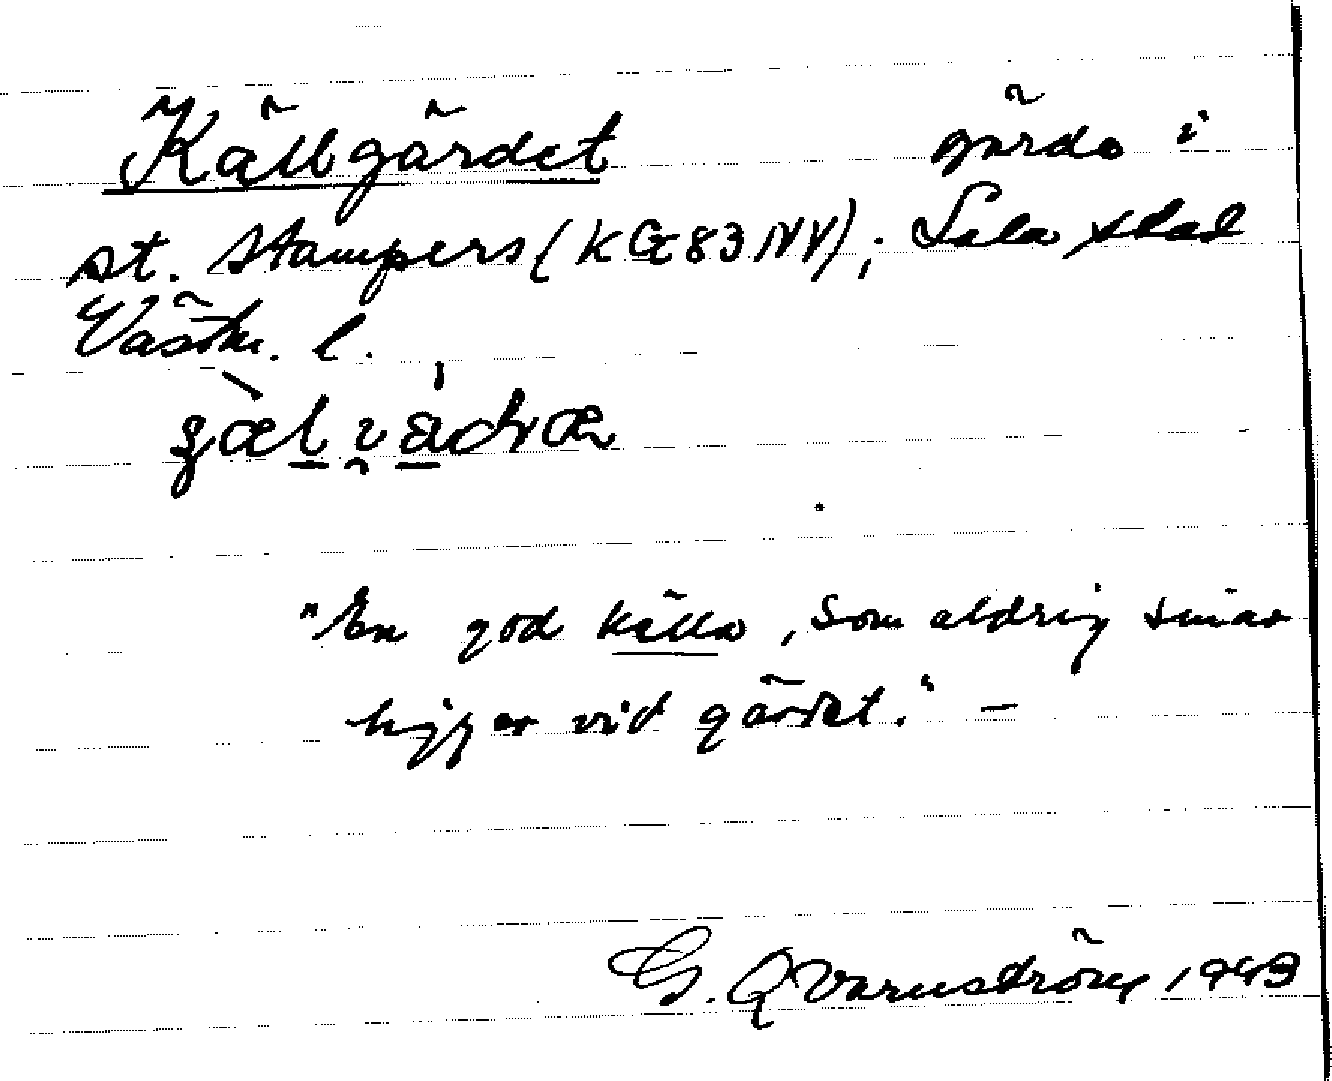 Källgärdet gärde i
st. Stampers (KG 83 NV); Sala stad
Västm. l.
"En god källa, som aldrig sinar
ligger vid gärdet." –
G. Qvarnström 1943